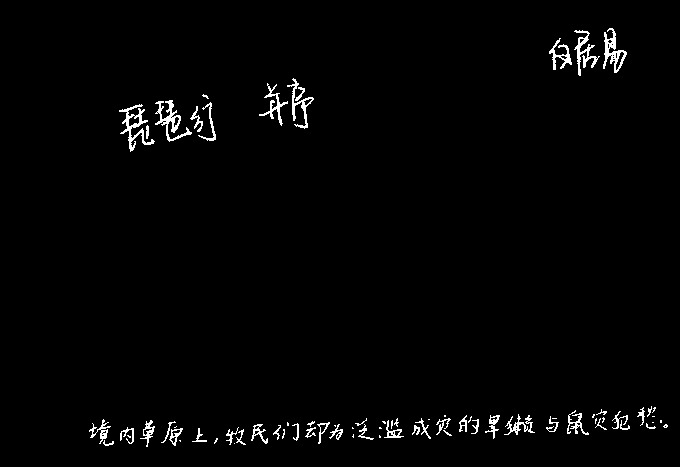 白居易
琵琶行 并序
境内草原上,牧民们却为泛滥成灾的旱獭与鼠灾犯愁。